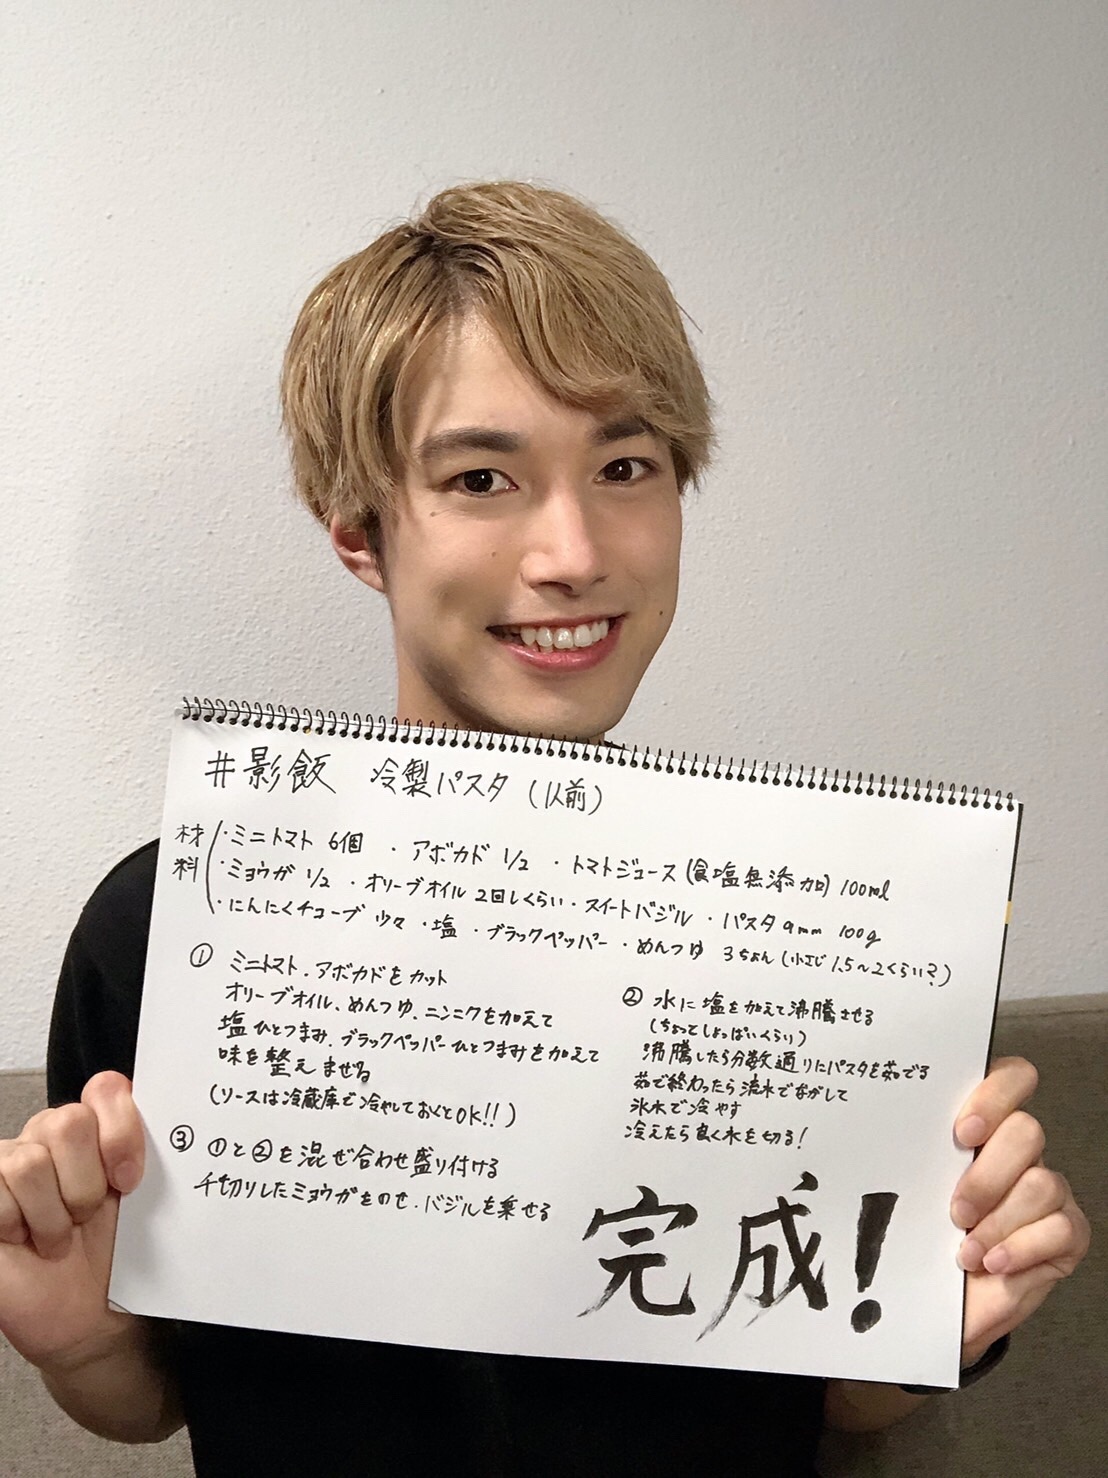 #影飯 冷製パスタ (以前)
材料
・ミニトマト 6個 ・アボカド 1/2 ・トマトジュース(食塩無添加) 100ml
・ミョウガ 1/2 ・オリーブオイル 2回しくらい・スイートバジル ・パスタ 9mm 100g
・にんにくチューブ 少々 ・塩 ・ブラックペッパー ・めんつゆ 3ちょん(小さじ 1.5～2くらい?)
① ミニトマト、アボカドをカット
オリーブオイル、めんつゆ、ニンニクを加えて
塩ひとつまみ、ブラックペッパーひとつまみを加えて
味を整えまぜる
(ソースは冷蔵庫で冷やしておくとOK!!)
② 水に塩を加えて沸騰させる
(ちょっとしょっぱいくらい)
沸騰したら分数通りにパスタを茹でる
茹で終わったら流水でながして
氷水で冷やす
冷えたら良く水を切る!
③ ①と②を混ぜ合わせ盛り付ける
千切りしたミョウガをのせ、バジルを乗せる
完成!